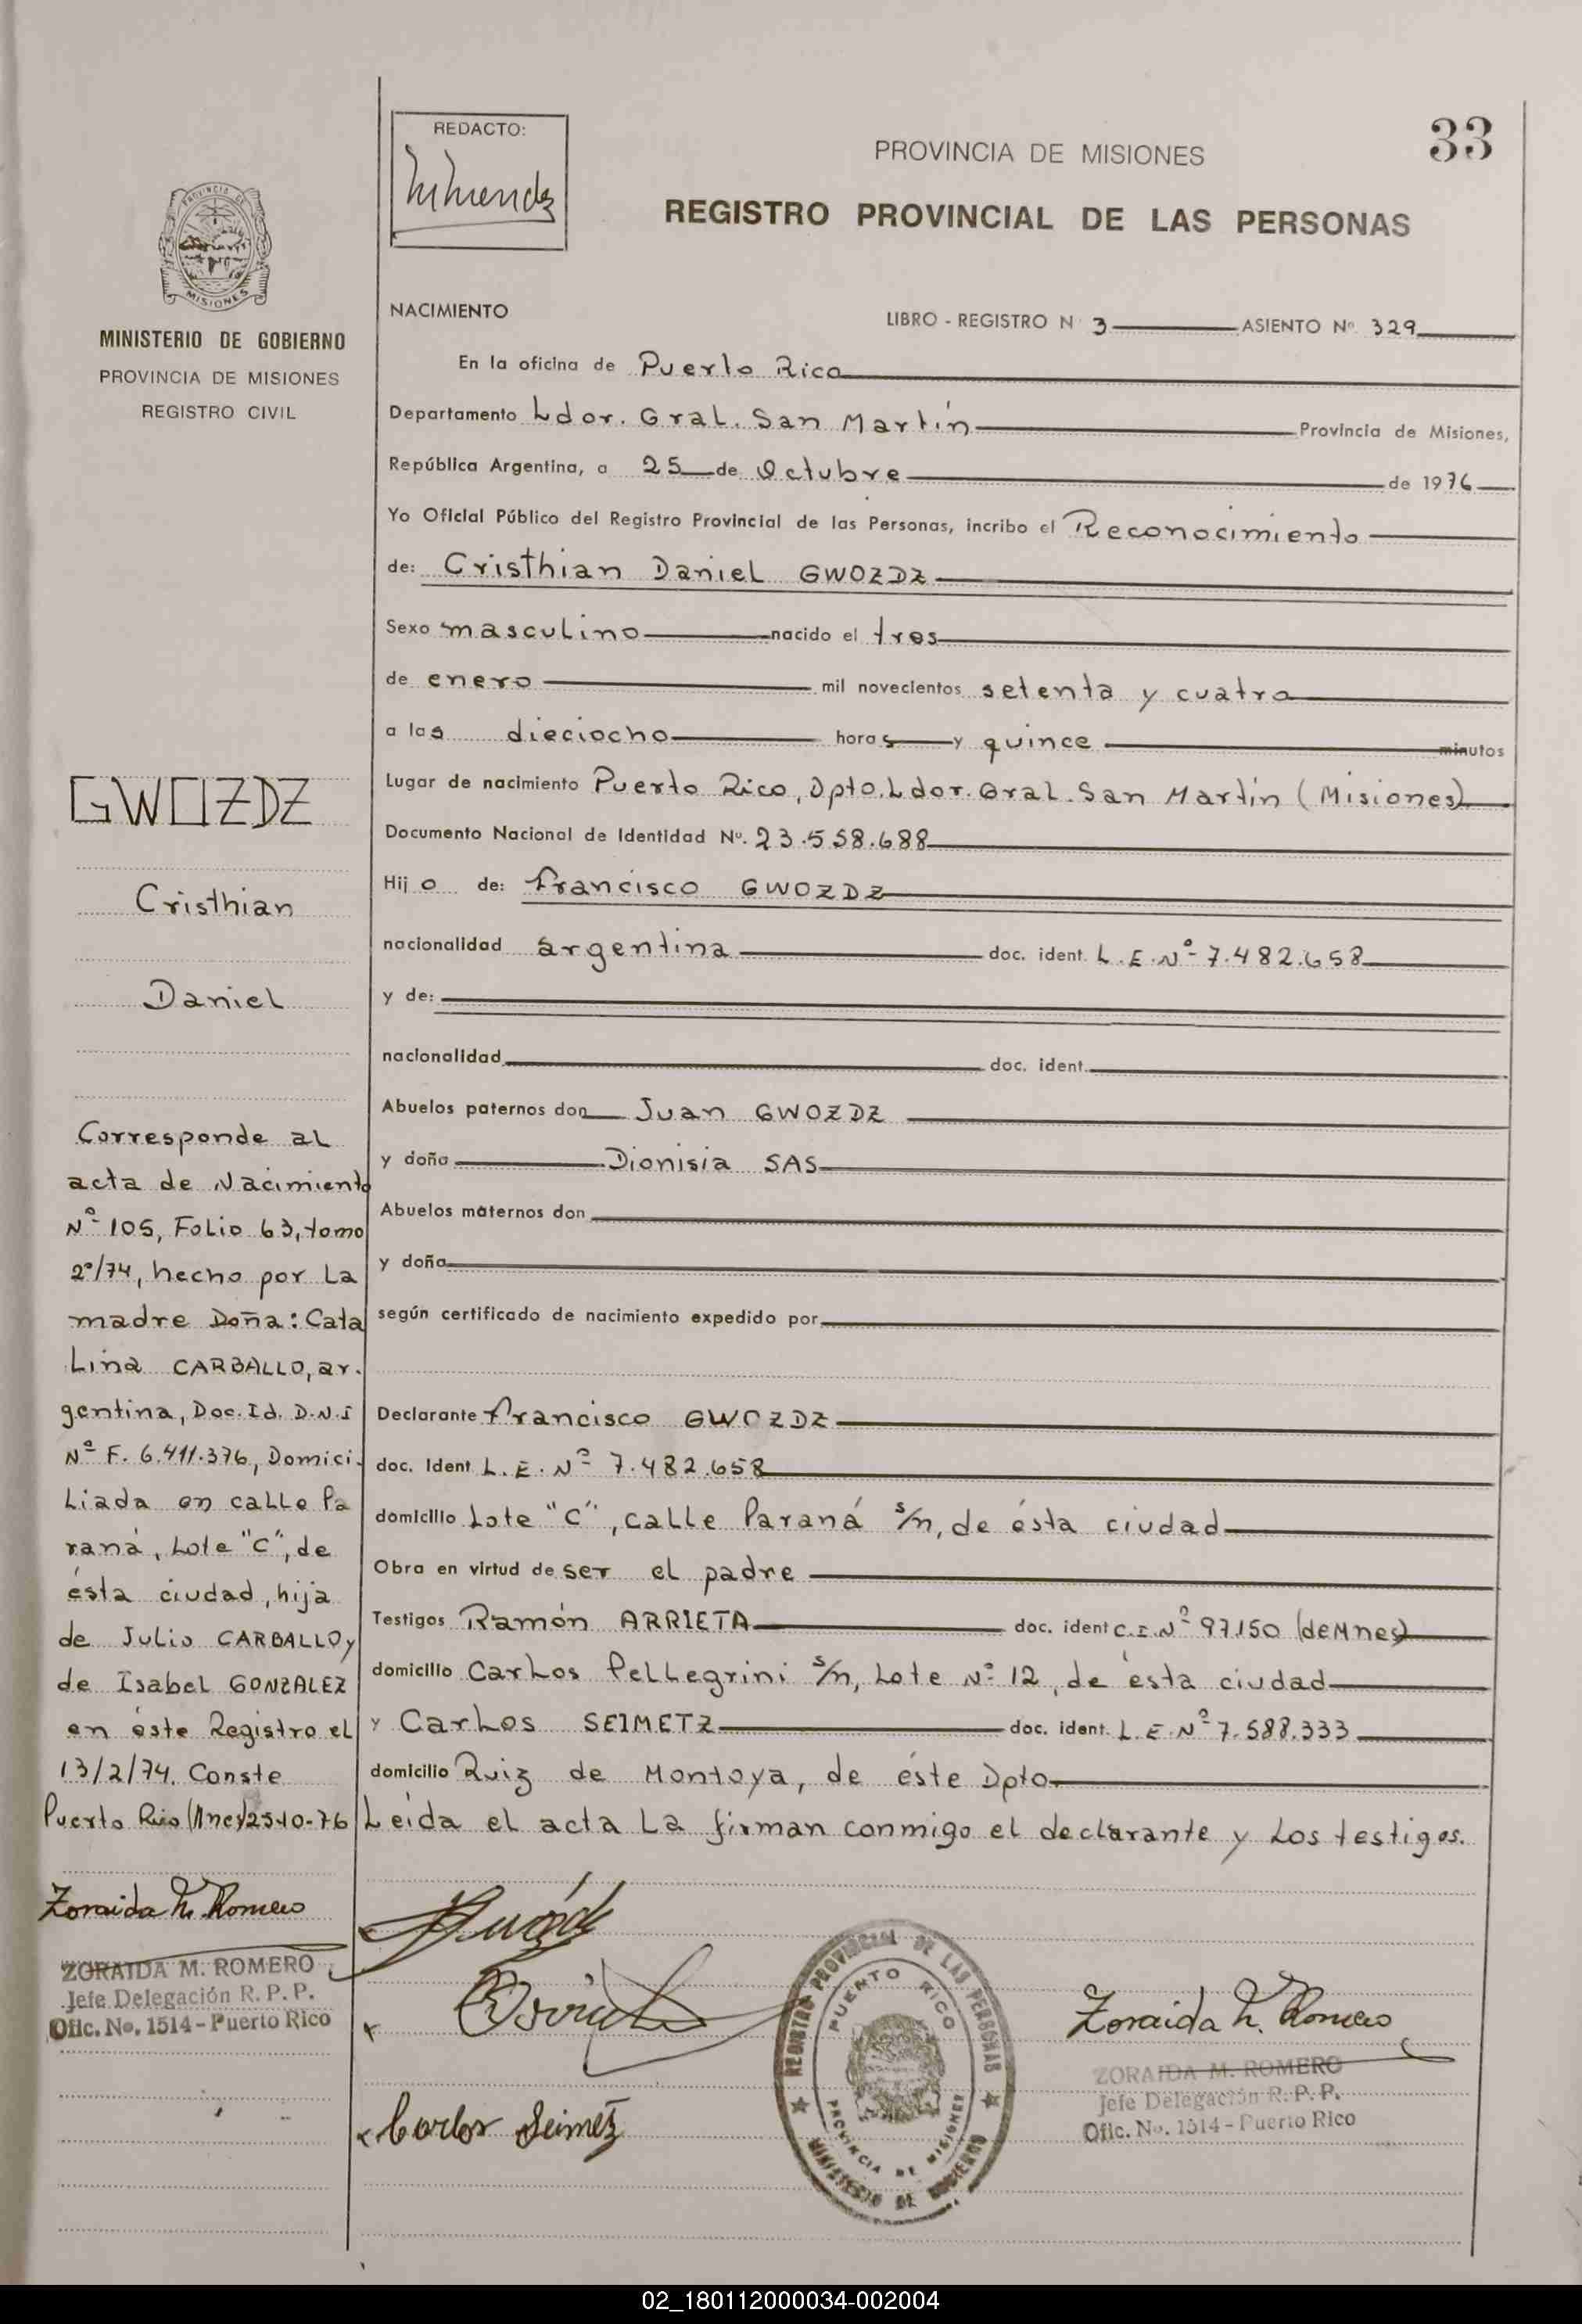 33
REDACTO:
PROVINCIA DE MISIONES
REGISTRO PROVINCIAL DE LAS PERSONAS
PROVINCIA DE
MISIONES
MINISTERIO DE GOBIERNO
PROVINCIA DE MISIONES
REGISTRO CIVIL
NACIMIENTO
LIBRO - REGISTRO N 3 ASIENTO Nº 329
En la oficina de Puerto Rico
Departamento Ldor. Gral. San Martín Provincia de Misiones,
República Argentina, a 25 de Octubre de 1976
Yo Oficial Público del Registro Provincial de las Personas, incribo el Reconocimiento
de: Cristhian Daniel GWOZDZ
Sexo masculino nacido el tres
de enero mil novecientos setenta y cuatro
a las dieciocho horas y quince minutos
Lugar de nacimiento Puerto Rico, Dpto. Ldor. Gral. San Martín (Misiones)
Documento Nacional de Identidad Nº. 23.558.688
Hijo de: Francisco GWOZDZ
nacionalidad argentina doc. ident. L.E.Nº 7.482.658
y de:
nacionalidad doc. ident.
Abuelos paternos don Juan GWOZDZ
y doña Dionisia SAS
Abuelos maternos don
y doña
según certificado de nacimiento expedido por
Declarante Francisco GWOZDZ
doc. Ident L.E.Nº 7.482.658
domicilio Lote "C", calle Paraná s/n, de ésta ciudad
Obra en virtud de ser el padre
Testigos Ramón ARRIETA doc. ident C.I.Nº 97.150 (de Mnes)
domicilio Carlos Pellegrini s/n, Lote Nº 12, de ésta ciudad
y Carlos SEIMETZ doc. ident. L.E.Nº 7.588.333
domicilio Ruiz de Montoya, de éste Dpto
Leída el acta la firman conmigo el declarante y los testigos.
GWOZDZ
Cristhian
Daniel
Corresponde al
acta de Nacimiento
Nº 105, Folio 63, tomo
2º/74, hecho por la
madre Doña: Cata
lina CARBALLO, ar.
gentina, Doc. Id. D.N.I
Nº F. 6.411.376, Domici.
liada en calle Pa
raná, Lote "C", de
ésta ciudad, hija
de Julio CARBALLO y
de Isabel GONZALEZ
en éste Registro el
13/2/74. Conste
Puerto Rico (Mnes) 25-10-76
Zoraida M. Romero
ZORAIDA M. ROMERO
Jefe Delegación R. P. P.
Ofic. No. 1514 - Puerto Rico
Carlos Seimetz
REGISTRO PROVINCIAL DE LAS PERSONAS
PUERTO RICO
PROVINCIA DE MISIONES
MINISTERIO DE GOBIERNO
Zoraida M. Romero
ZORAIDA M. ROMERO
Jefe Delegación R. P. P.
Ofic. No. 1514 - Puerto Rico
02_180112000034-002004